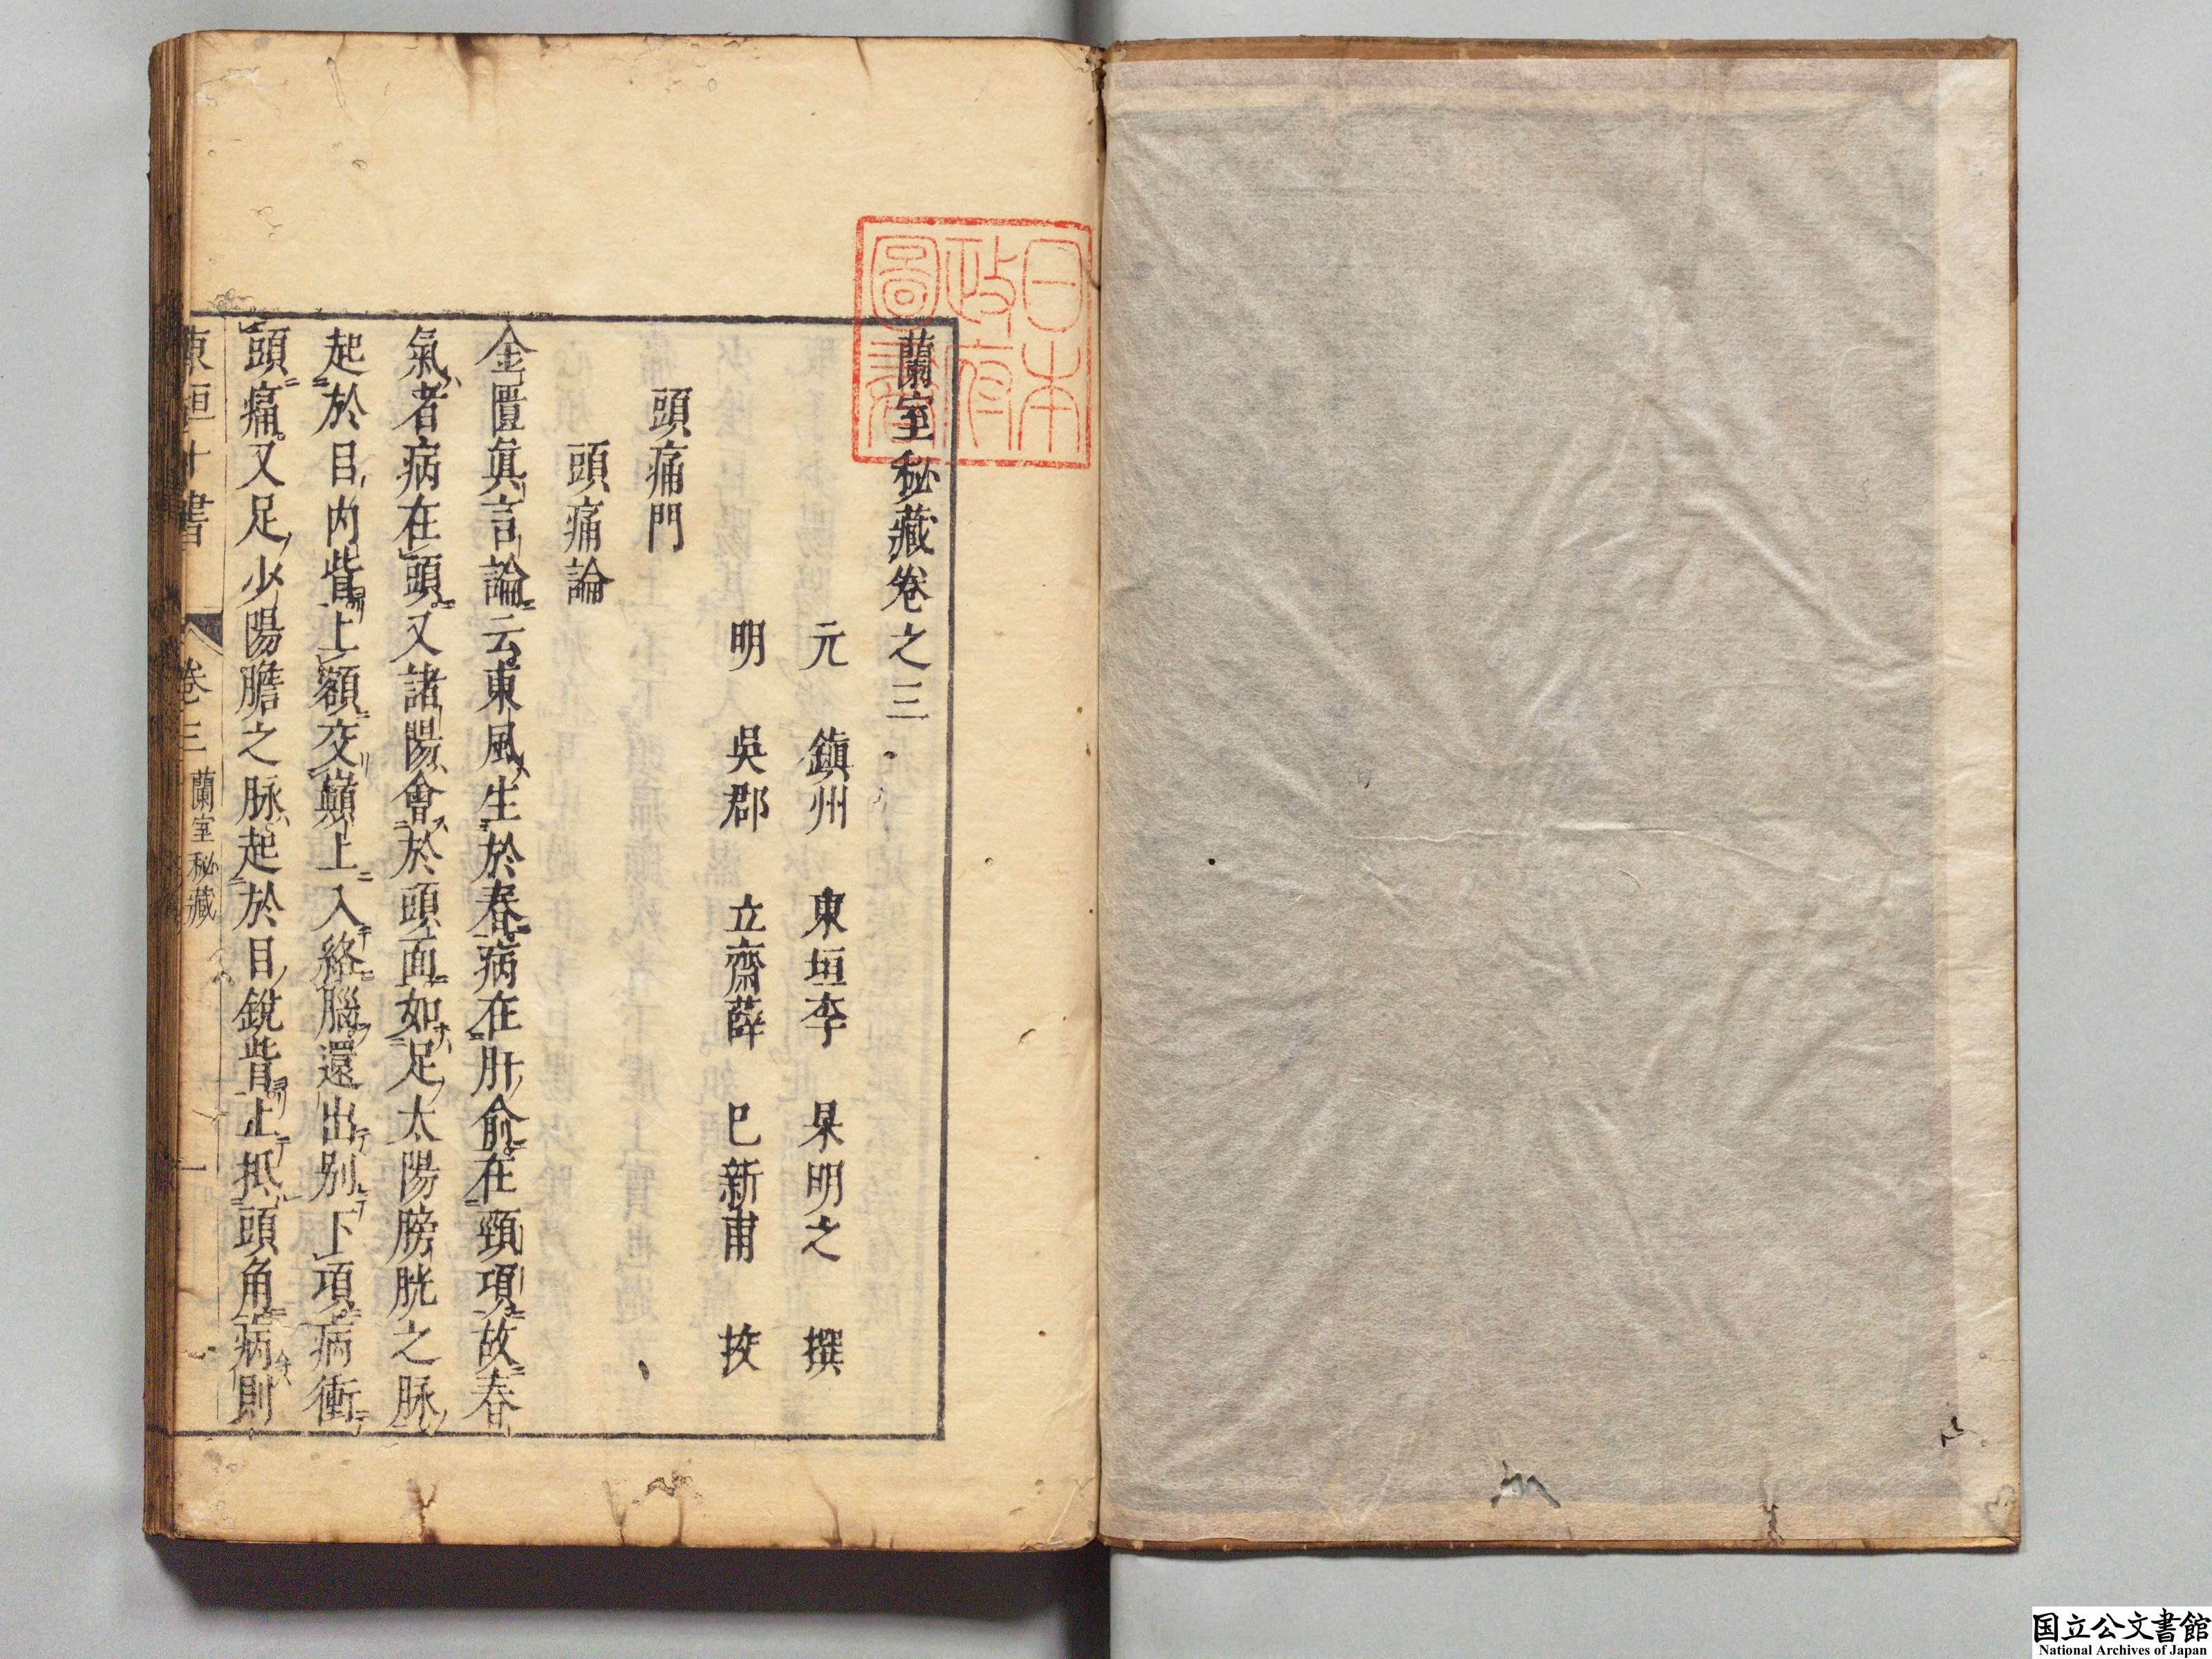 日本
政府
圖書
蘭室秘藏卷之三
元 鎮州 東垣李 杲明之 撰
明 吳郡 立齋薛 巳新甫 挍
頭痛門
頭痛論
金匱眞言論云東風生於春病在肝俞在頸項故春
氣者病在頭又諸陽會於頭面如足太陽膀胱之脉
起於目内眥上額交巔上入絡腦還出别下項病衝
頭痛又足少陽膽之脉起於目銳眥上抵頭角病則
東垣十書 卷三 蘭室秘藏 一
国立公文書館
National Archives of Japan